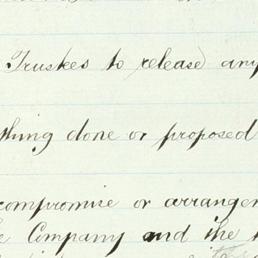 Trustees to release any
thing done or proposed
compromise or arrange
Company and the